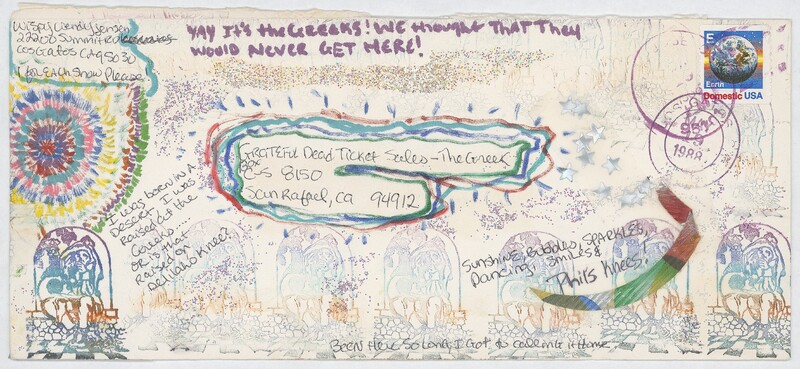 Wispy Wendy Jensen
22200 Summit Rd
Los Gatos CA 95030
1 for Each Show Please!
YAY It's the GREEKS! WE thought THAT They
WOULD NEVER GET HERE!
E
Earth
Domestic USA
1988
GRATEFUL Dead Ticket Sales - The Greek
8150
San Rafael, ca 94912
I was born in a
Desert I was
Raised out the
Greeks....
OR is that
Raised on
Delilahs Knee?
Sunshine, Bubbles, SPARKLES,
Dancing, Smiles &
Phil's Knees!
BEEN Here So Long, I Got to calling it Home